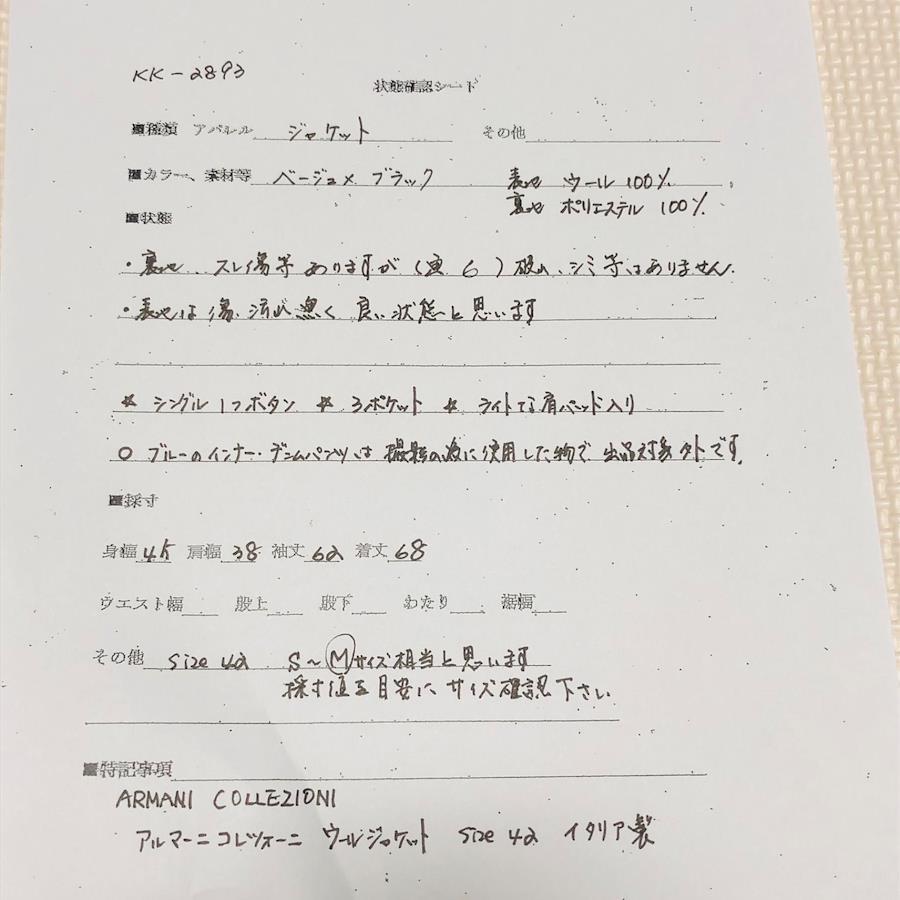 KK-2893
状態確認シート
■種類 アパレル ジャケット その他
■カラー、素材等 ベージュ×ブラック 表地 ウール 100%
裏地 ポリエステル 100%
■状態
・裏地、スレ傷等ありますが(写6)破れ、シミ等はありません.
・表地は傷、汚れ無く良い状態と思います
☆ シングル1つボタン ☆ 3ポケット ☆ ライトな肩パッド入り
○ ブルーのインナー・デニムパンツは撮影の為に使用した物で出品対象外です.
■採寸
身幅 45 肩幅 38 袖丈 62 着丈 68
ウエスト幅 股上 股下 わたり 裾幅
その他 size 42 S~Mサイズ相当と思います
採寸値を目安にサイズ確認下さい
■特記事項
ARMANI COLLEZIONI
アルマーニ コレツォーニ ウールジャケット size 42 イタリア製